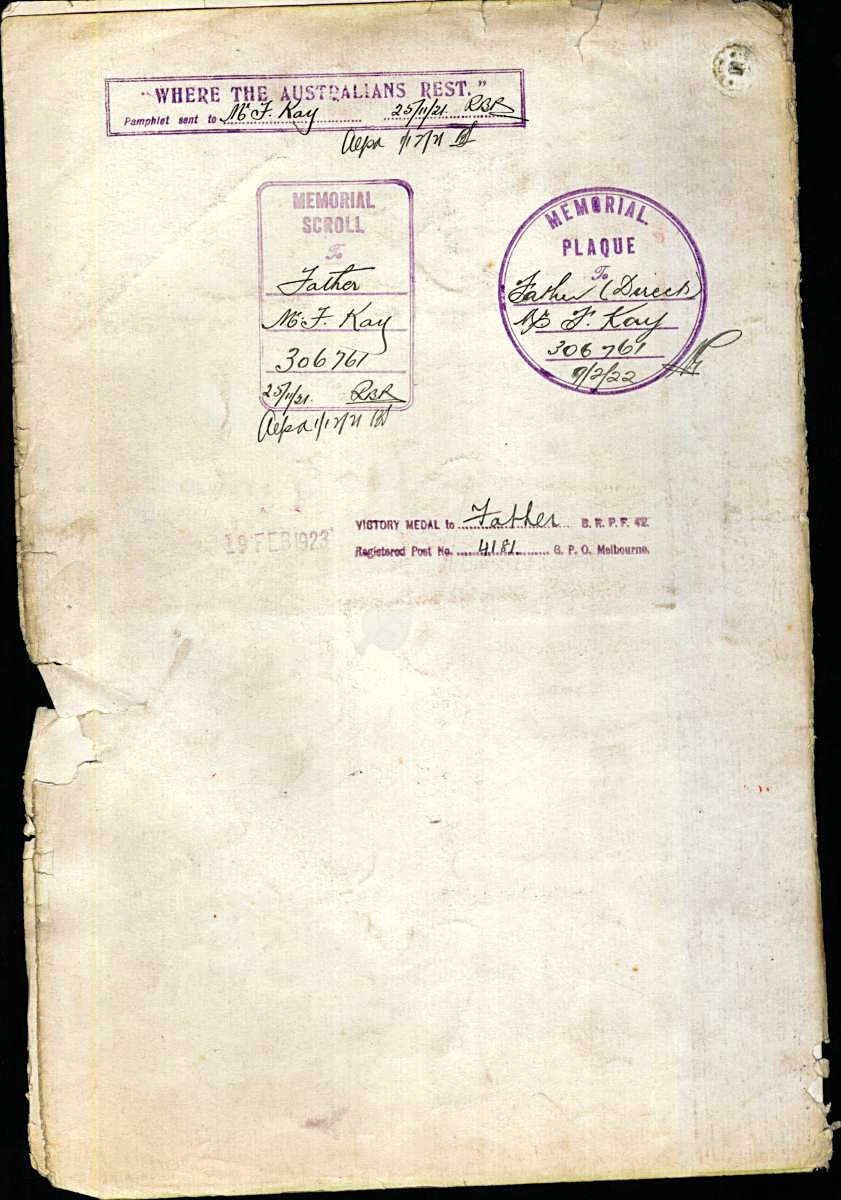 "WHERE THE AUSTRALIANS REST."
Pamphlet sent to Mr F. Kay 25/11/21 RBR
1/12/21
MEMORIAL
SCROLL
To
Father
Mr. F. Kay
306761
25/11/21. RBR
1/12/21
MEMORIAL
PLAQUE
To
Father (Direct)
Mr F. Kay
306761
9/2/22
VICTORY MEDAL to Father B. R. P. F. 42.
19 FEB 1923
Registered Post No. 4181 G. P. O. Melbourne.